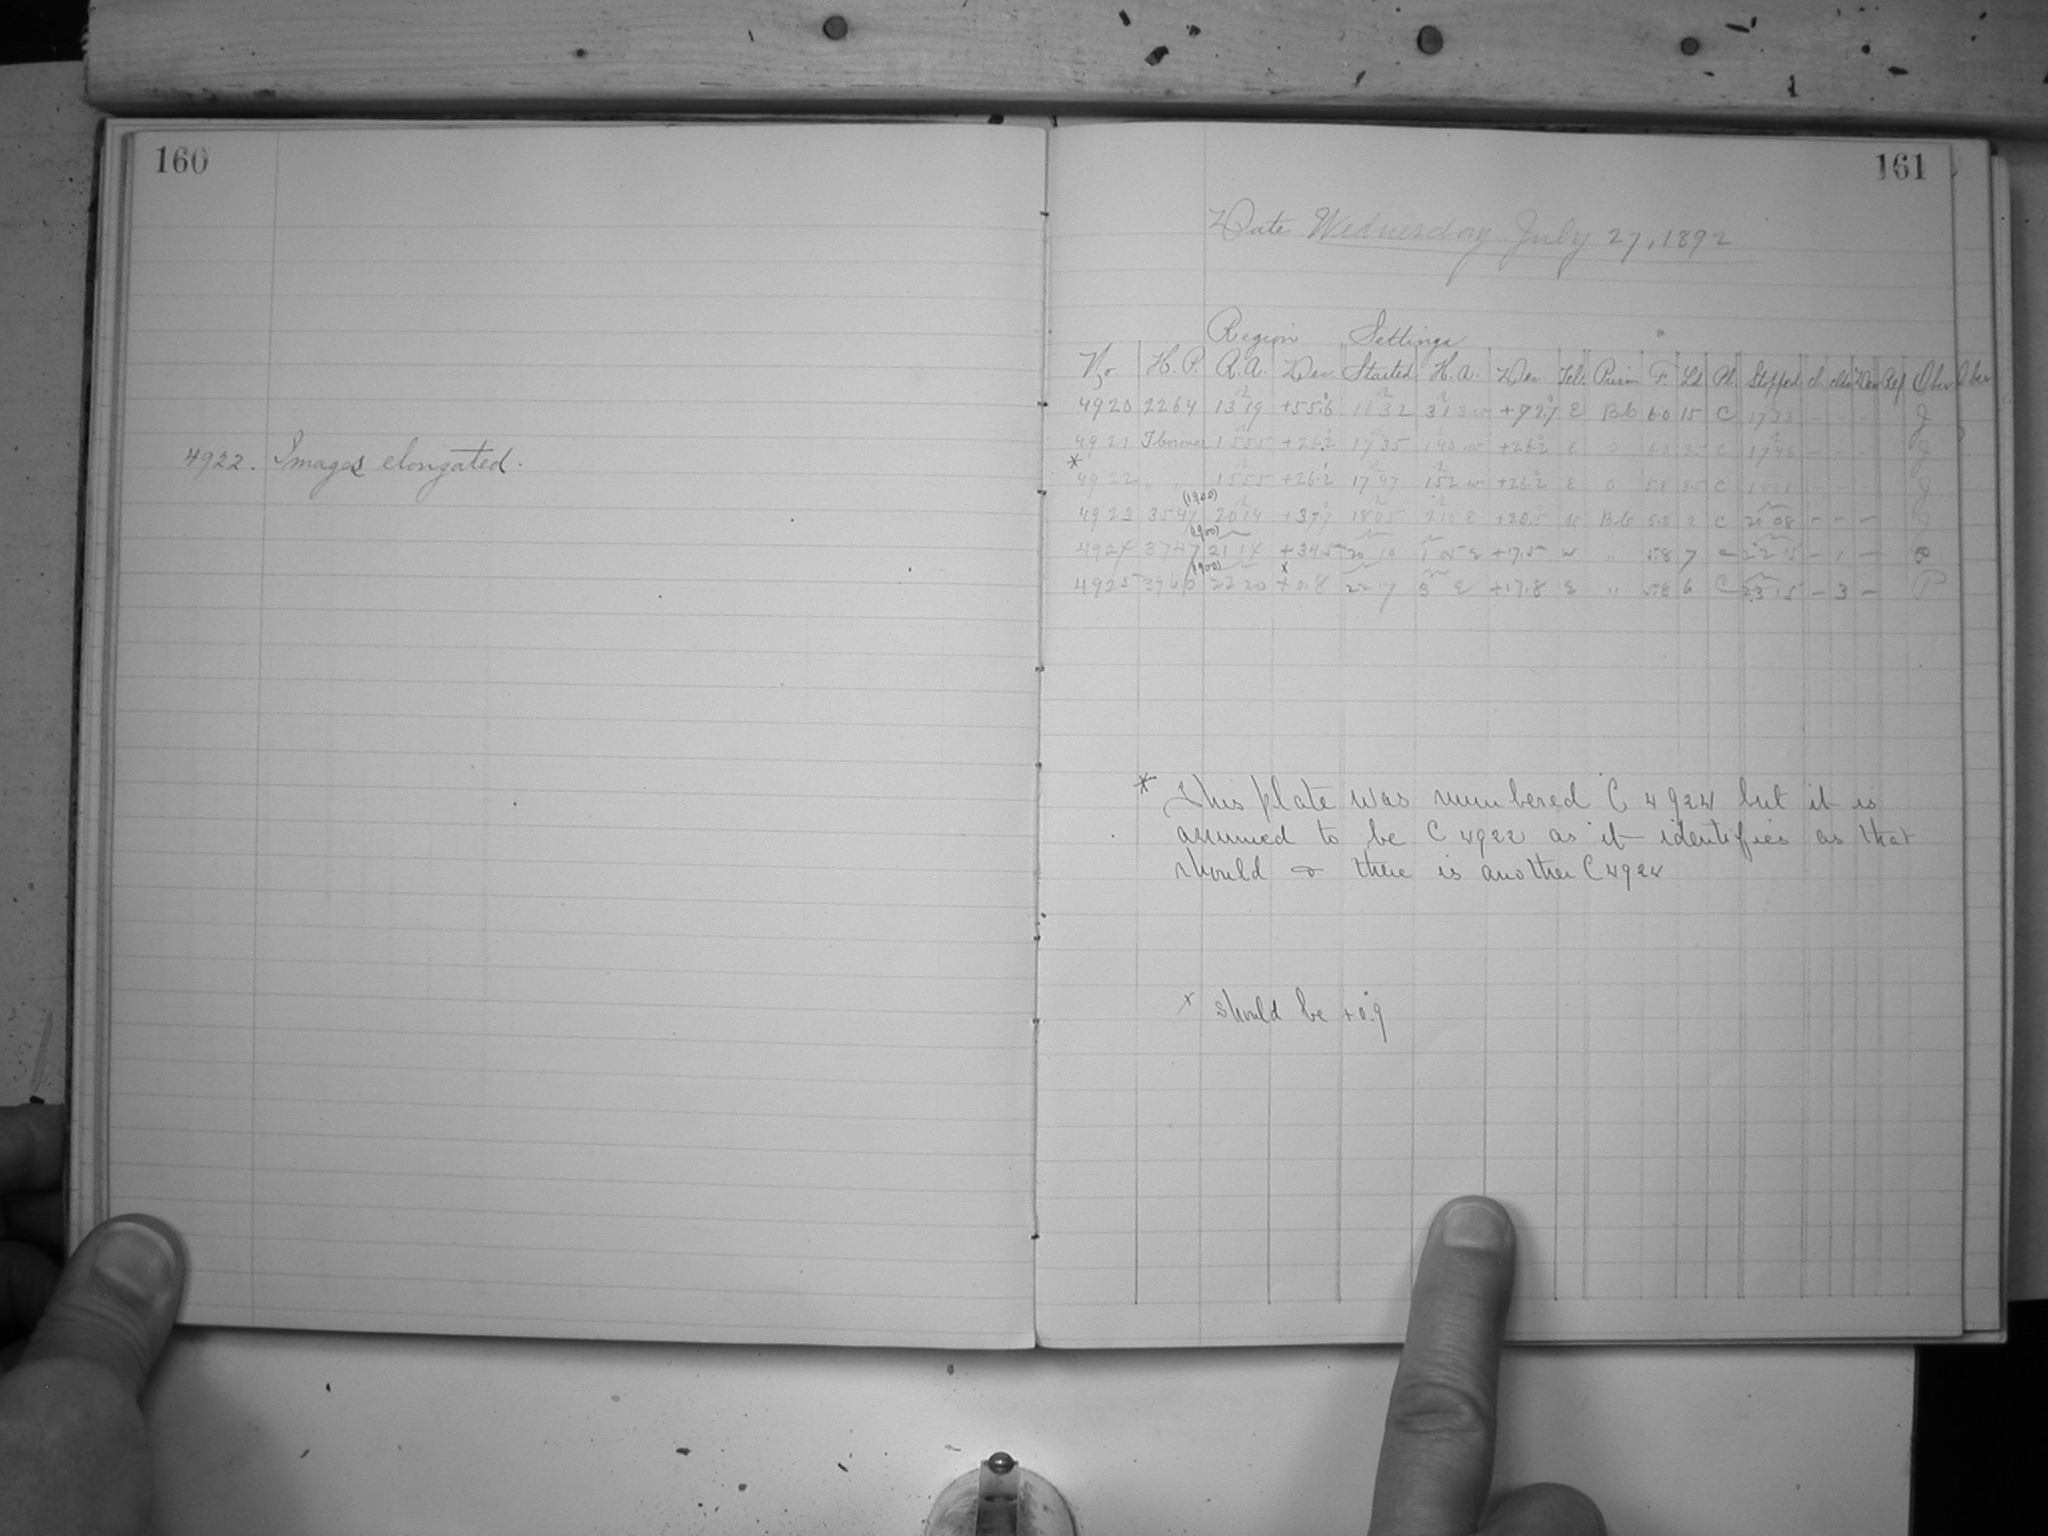 160
4922. Images elongated.
161
Date Wednesday July 27, 1892
Region Settings
No. H. P. R.A. Dec. Started H. A. Dec. Tel. Prism F. Ld Pl. Stopped Ref Obser Obser
4920 2264 13 19 +55.6 16 32 3 13 w E B6 60 15 C 17 33 - - - J
4921 15 55 +26.2 17 35 1 40 w +26.2 E 0 60 C 17 46 - - - J
* 4922 " " 15 55 +26.2 17 47 1 52 w +26.2 E 0 58 C J
(1900)
4923 3547 20 14 +37.7 18 05 E B6 58 2 C 20 08 - - -
(1900)
4924 3747 21 14 +34.5 20 10 1 05 E +17.5 w " 58 7 C 22 15 - 1 -
(1900) x
4925 22 20 +0.8 22 7 E +17.8 E " 58 6 C 23 15 - 3 - P
* This plate was numbered C 4924 but it is
assumed to be C 4922 as it identifies as that
should & there is another C 4924
x should be +0.9